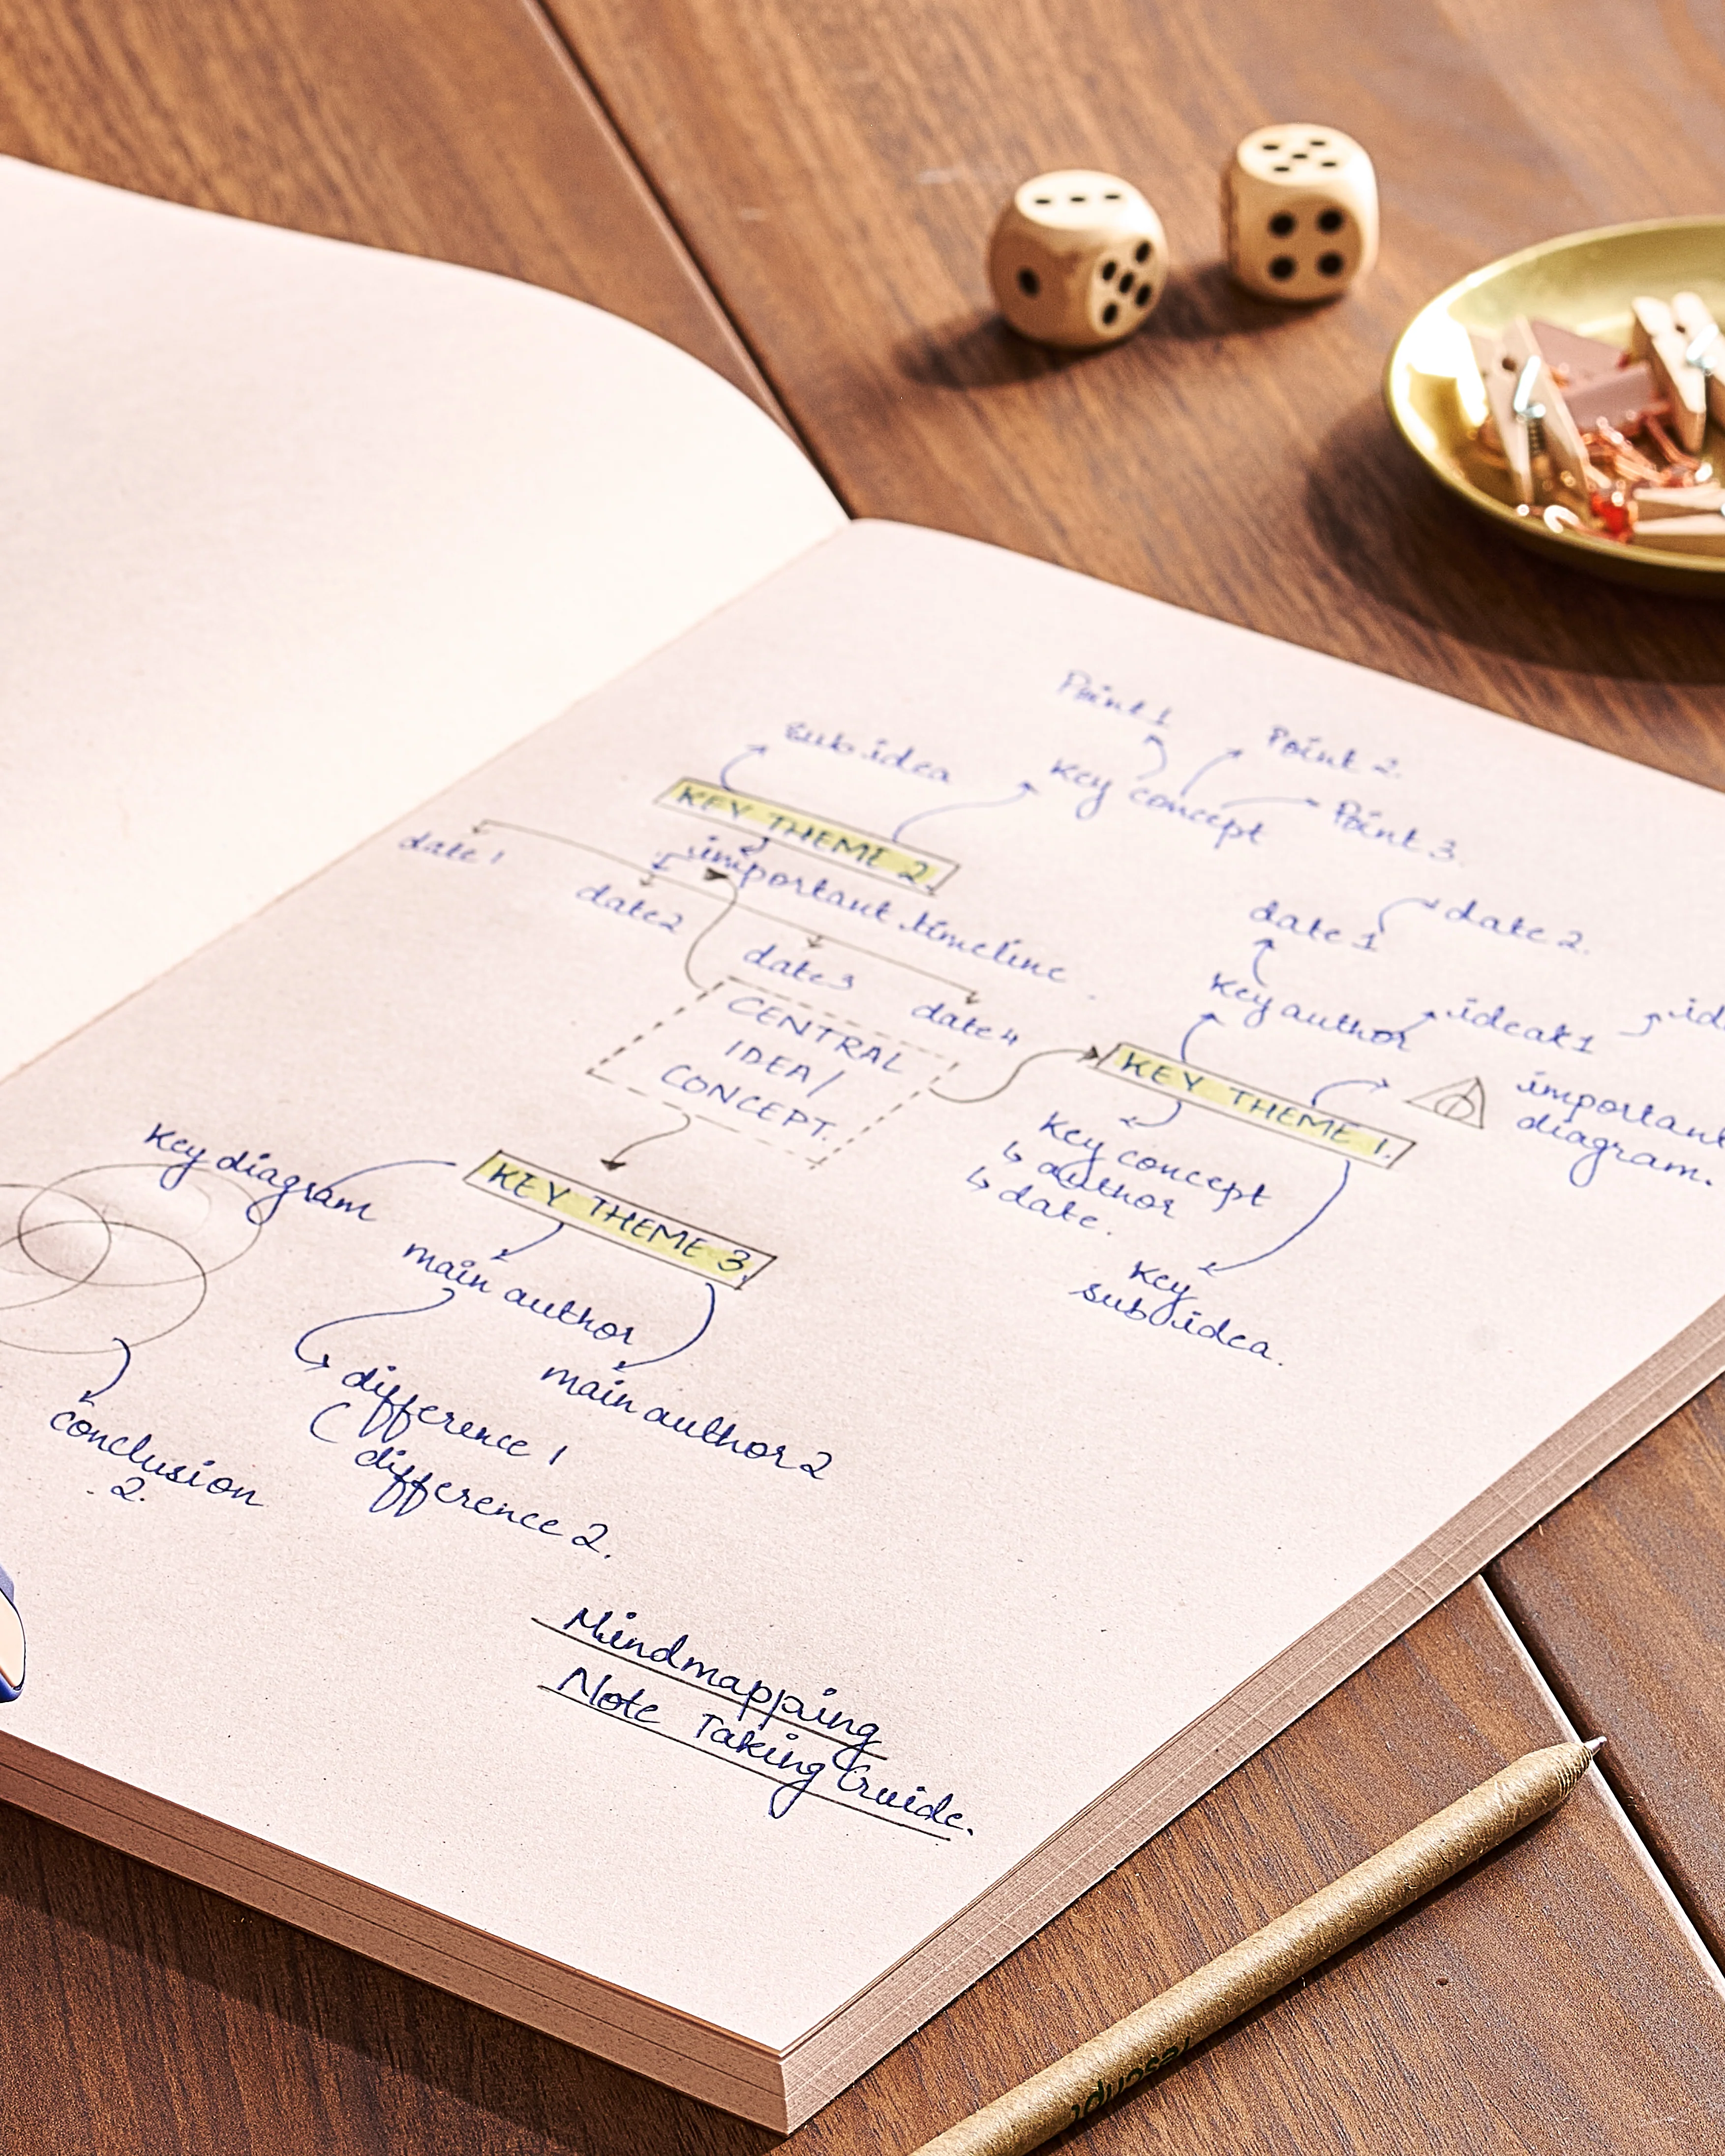 Point 1
Point 2.
sub idea
Key concept
Point 3.
KEY THEME 2.
date 1
important timeline
date 2
date 1
date 2.
date 3
Key author
date 4
ideak 1
CENTRAL
IDEA/
CONCEPT.
KEY THEME 1.
important
diagram.
Key concept
↳ author
↳ date.
Key diagram
KEY THEME 3
main author
Key
sub idea.
difference 1
main author 2
conclusion
2.
difference 2.
Mindmapping
Note Taking Guide.